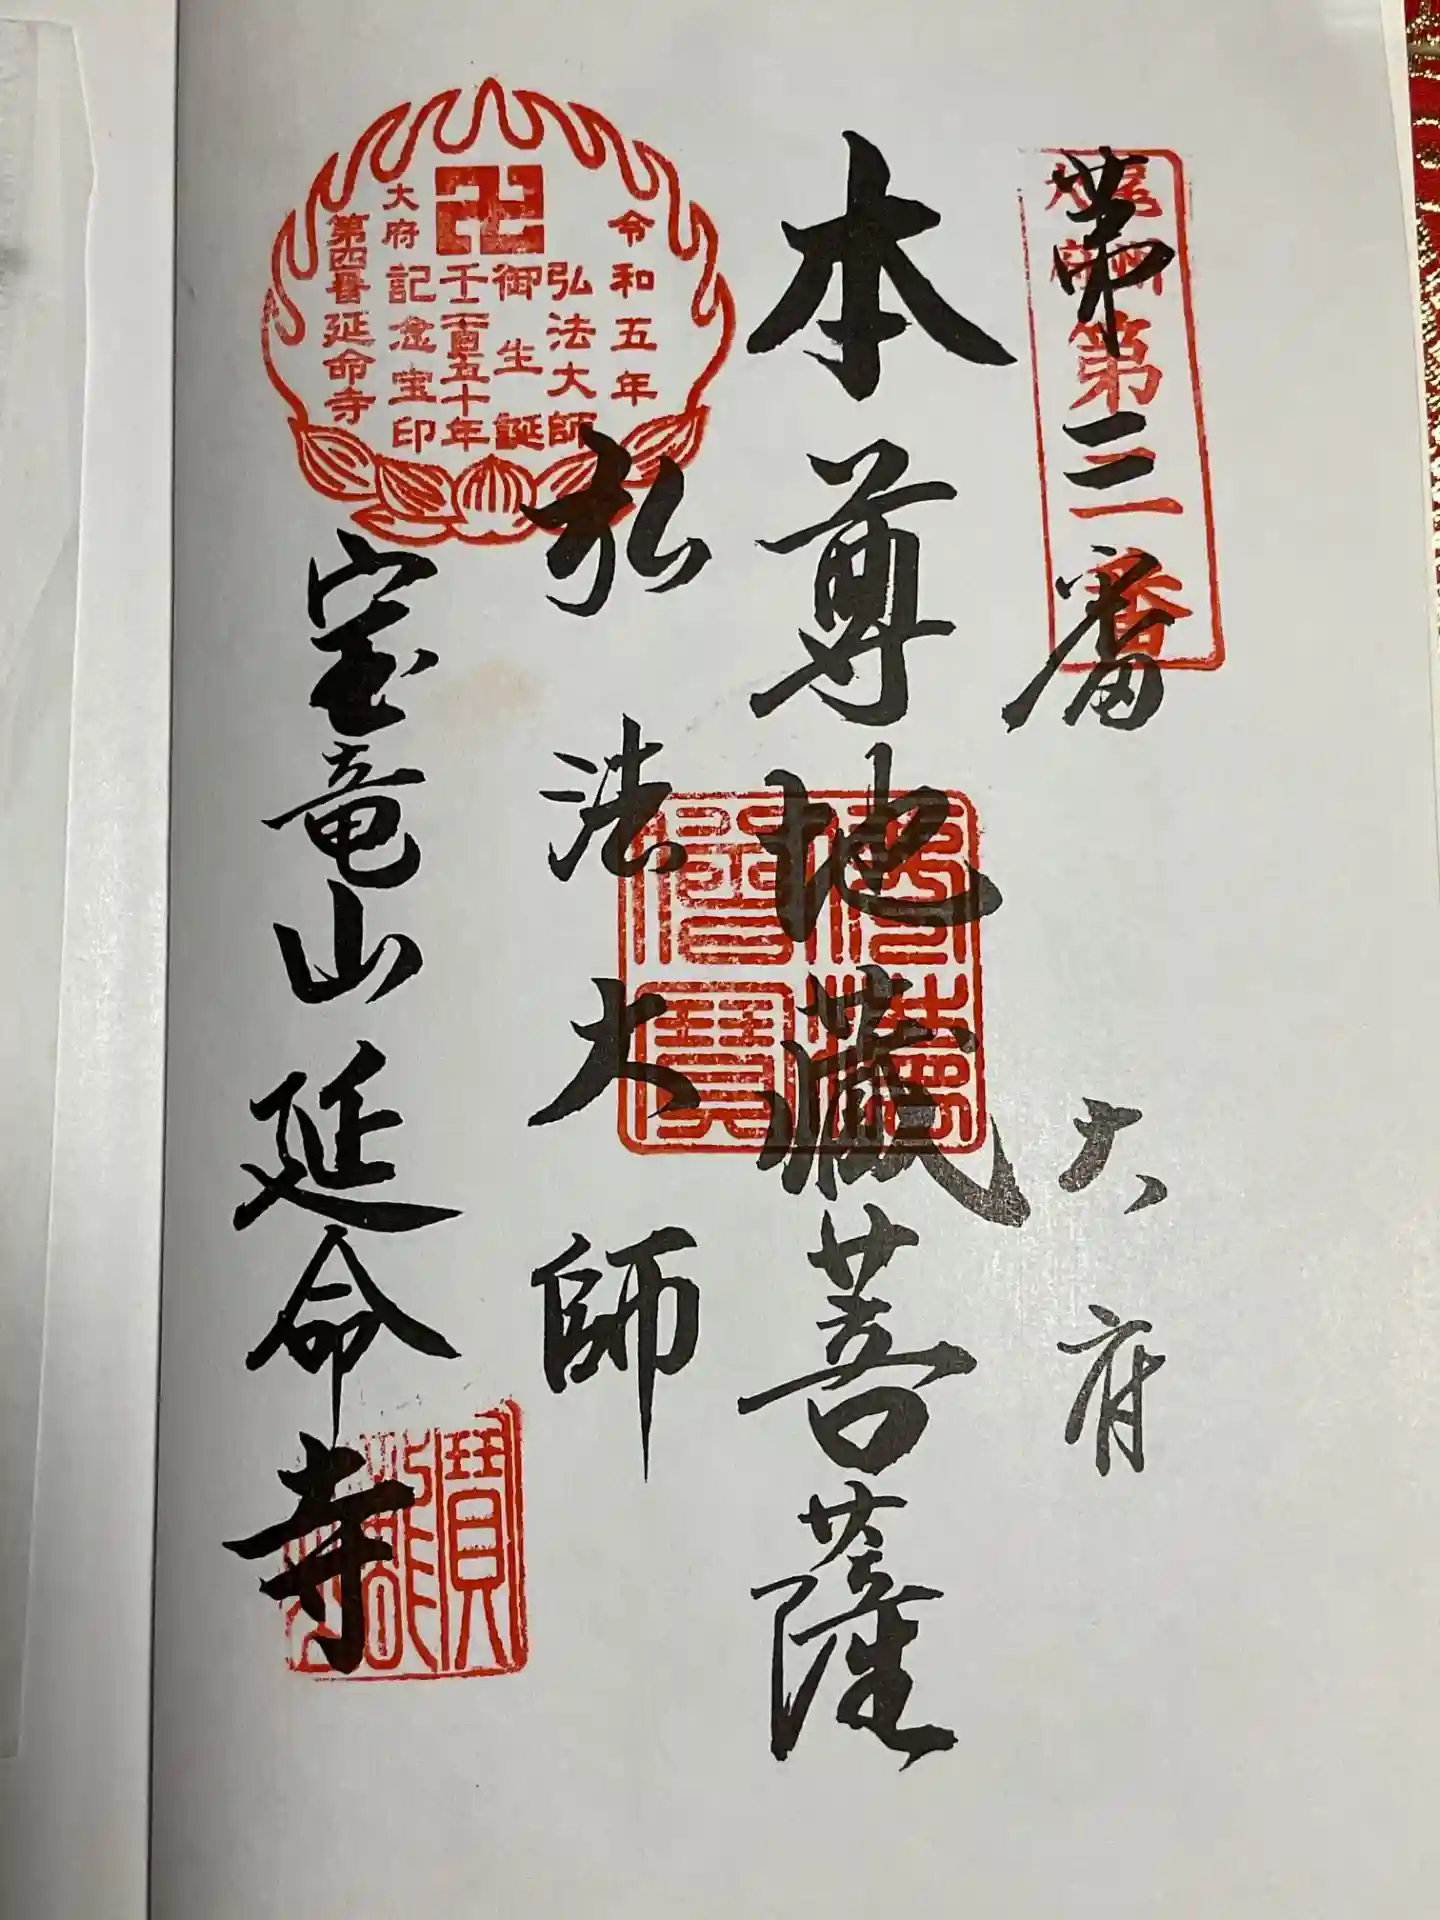 第三番 大府
尾州
大府
第三番
本尊地蔵菩薩
弘法大師
宝竜山延命寺
令和五年
弘法大師
御生誕
千二百五十年
記念宝印
大府
第四番延命寺
寶
龍
山